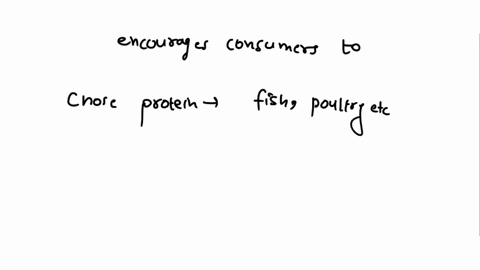 encourages consumers to
Chose protein → fish, poultry etc